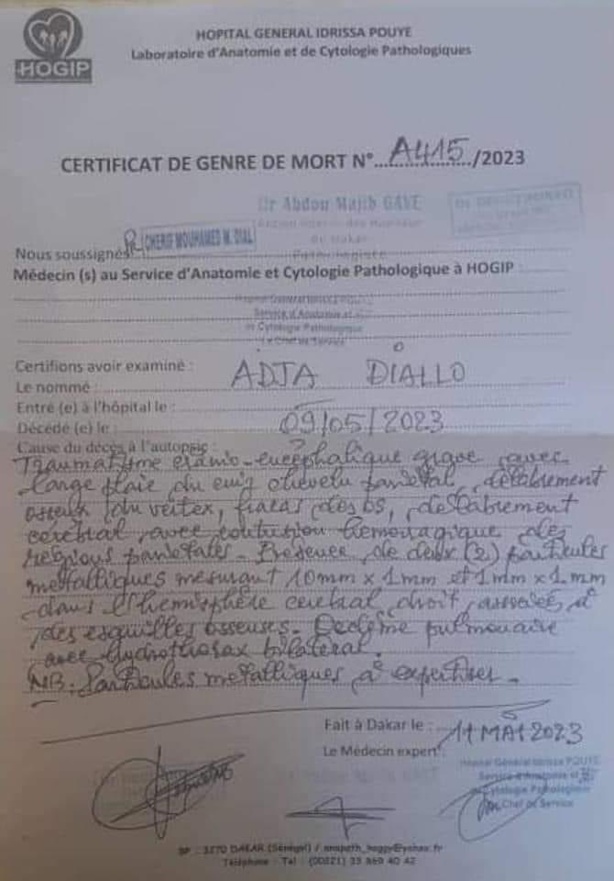 HOGIP
HOPITAL GENERAL IDRISSA POUYE
Laboratoire d'Anatomie et de Cytologie Pathologiques
CERTIFICAT DE GENRE DE MORT N° A415/2023
Dr Abdou Majib GAYE
Nous soussignés CHERIF MOUHAMED M. DIAL
Médecin (s) au Service d'Anatomie et Cytologie Pathologique à HOGIP
Service d'Anatomie et
de Cytologie Pathologique
Le Chef de Service
Certifions avoir examiné :
Le nommé : ADJA DIALLO
Entré (e) à l'hôpital le :
Décédé (e) le : 09/05/2023
Cause du décès à l'autopsie :
Traumatisme crânio-encéphalique grave avec
large plaie du cuir chevelu pariétal, délabrement
osseux du vertex, fracas des os, délabrement
cérébral avec contusion hémorragique des
régions pariétales. Présence de deux (2) particules
métalliques mesurant 10mm x 1mm et 1mm x 1mm
dans l'hémisphère cérébral droit, associés à
des esquilles osseuses. Oedème pulmonaire
avec hydrothorax bilatéral.
NB: Particules métalliques à expertiser.
Fait à Dakar le : 11 MAI 2023
Le Médecin expert :
Hôpital Général Idrissa POUYE
Service d'Anatomie et
de Cytologie Pathologique
Chef de Service
BP : 3270 DAKAR (Sénégal) /
Téléphone - Tel : (00221) 33 869 40 42